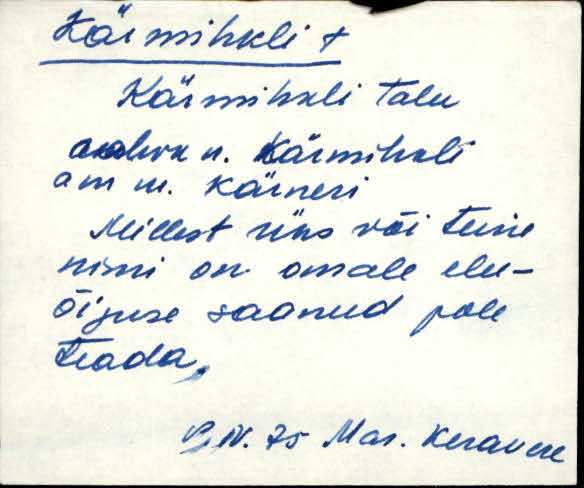 Kärmihkli t
Kärmihkli talu
rahva n. Kärmihkli
am m. Kärneri
Millest üks või teine
nimi on omale elu-
õiguse saanud pole
teada.
P. N. 75 Mar. Keravere